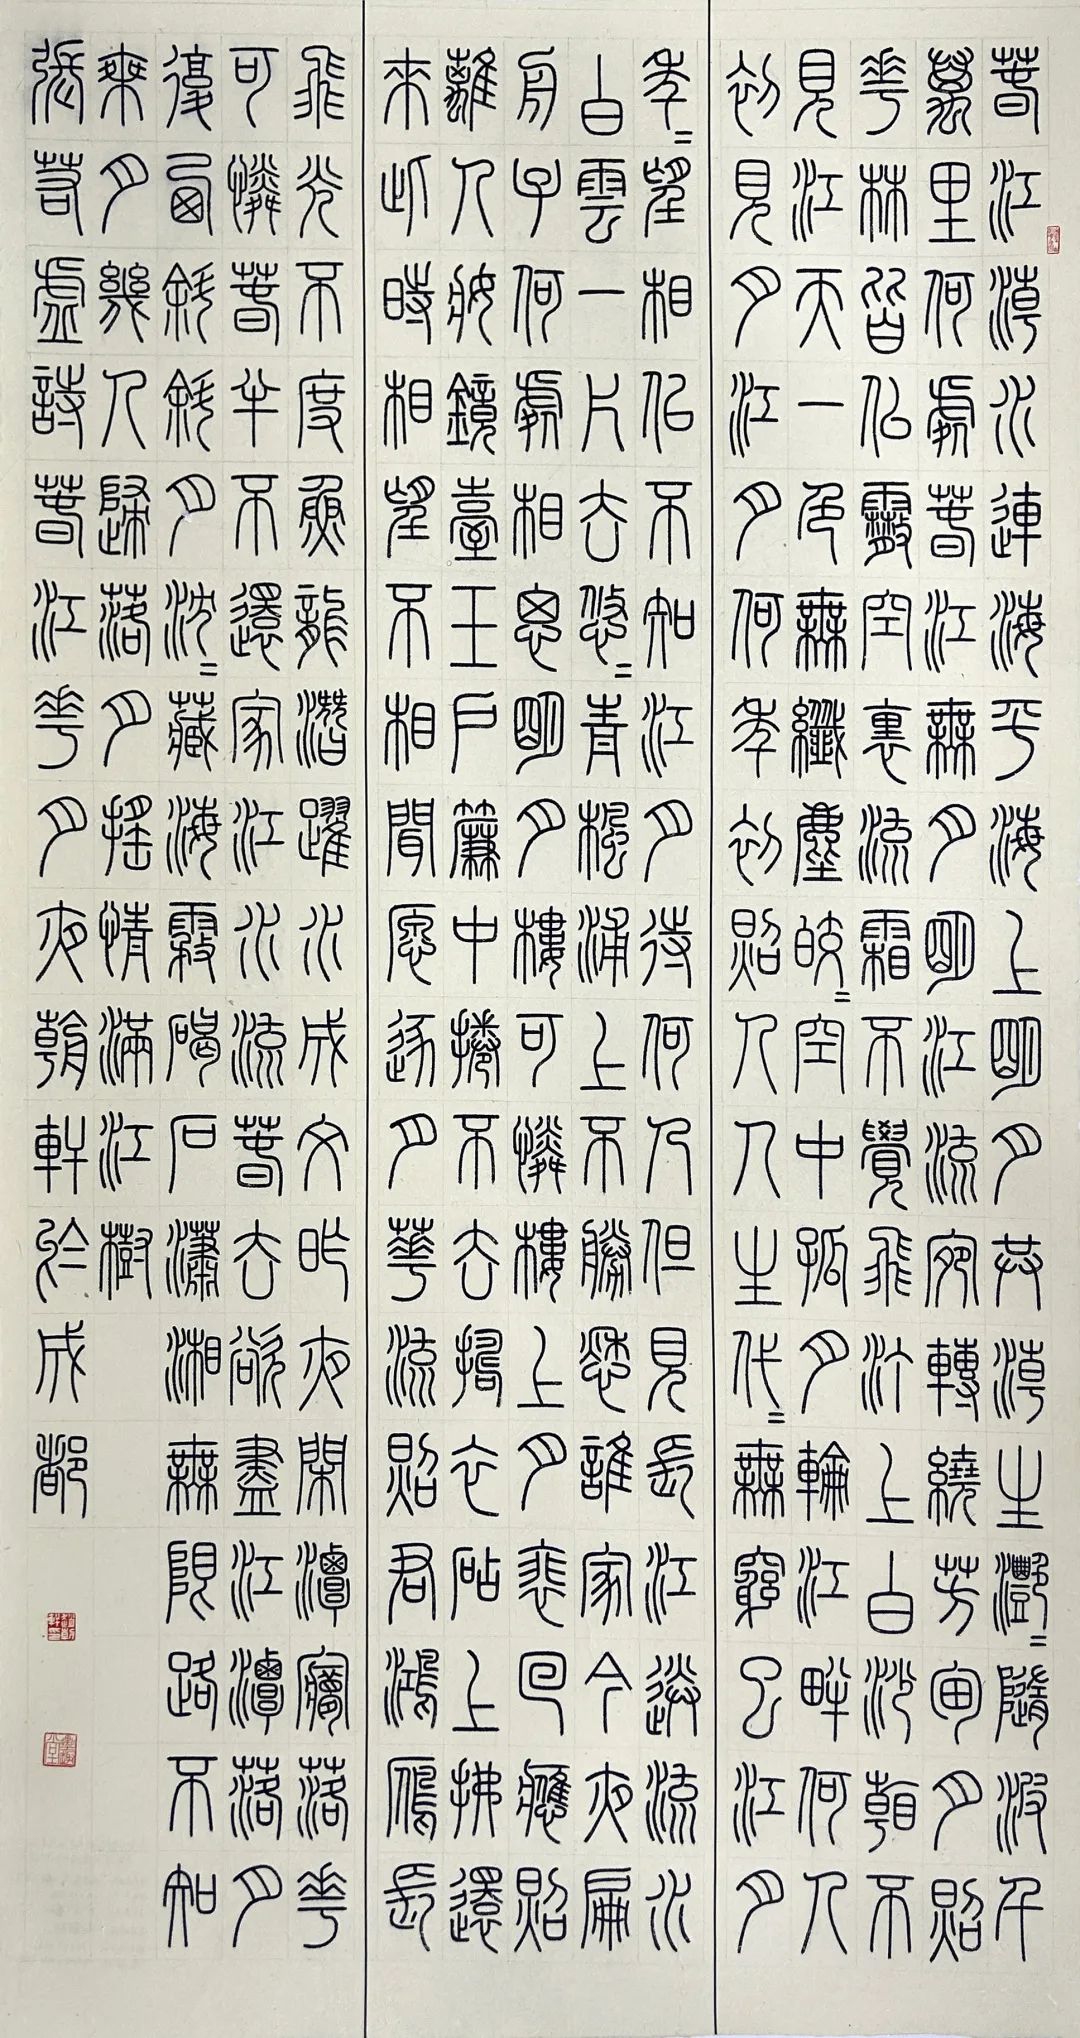 春江潮水連海平海上明月共潮生灩=隨波千
萬里何處春江無月明江流宛轉繞芳甸月照
花林皆似霰空裏流霜不覺飛汀上白沙看不
見江天一色無纖塵皎=空中孤月輪江畔何人
初見月江月何年初照人人生代=無窮已江月
年=望相似不知江月待何人但見長江送流水
白雲一片去悠=青楓浦上不勝愁誰家今夜扁
舟子何處相思明月樓可憐樓上月裴回應照
離人妝鏡臺玉戶簾中捲不去擣衣砧上拂還
來此時相望不相聞願逐月華流照君鴻雁長
飛光不度魚龍潛躍水成文昨夜閑潭夢落花
可憐春半不還家江水流春去欲盡江潭落月
復西斜斜月沈=藏海霧碣石瀟湘無限路不知
乘月幾人歸落月搖情滿江樹
張若虛詩春江花月夜朝軒於成都